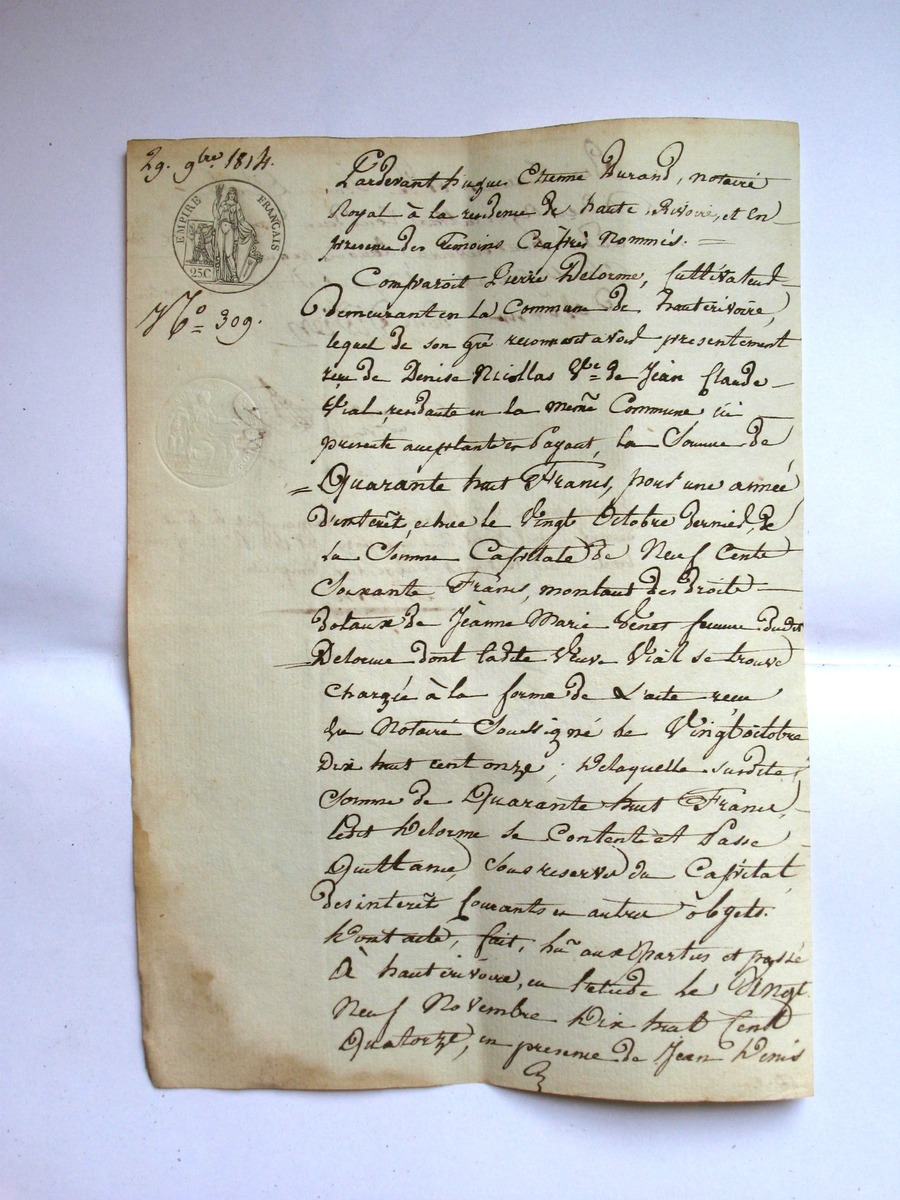 29. 9bre 1814.
EMPIRE FRANÇAIS
25C
No 309.
Pardevant hugues Etienne Durand, notaire
Royal à la residence de haute Rivoire, et en
presence des temoins Ciaprès Nommés. =
Comparoit Pierre Delorme, Cultivateur
demeurant en la Commune de hauterivoire,
lequel de son gré reconnoit avoir presentement
reçu de Denise Nicollas Ve de Jean Claude
Vial, residante en la même Commune ici
presente acceptante et Payant, la Somme de
= Quarante huit Francs, pour une année
D'interêt, echue le Vingt Octobre dernier, de
la Somme Capitale de Neuf Cents
Soixante Francs, montant des droits
dotaux de Jeanne Marie femme dudit
Delorme dont ladite Veuve Vial se trouve
Chargée à la forme de L'acte reçu
du Notaire Soussigné le Vingt octobre
Dix huit cent onze ; Delaquelle susdite
Somme de Quarante huit Francs,
ledit Delorme se Contente et Passe
Quittance, Sous reserve du Capital,
des interêt Courants et autres objets.
Dont acte, fait, lu aux Parties et passé
à hauterivoire, en l'etude le Vingt
Neuf Novembre Dix huit Cent
Quatorze, en presence de Jean Denis